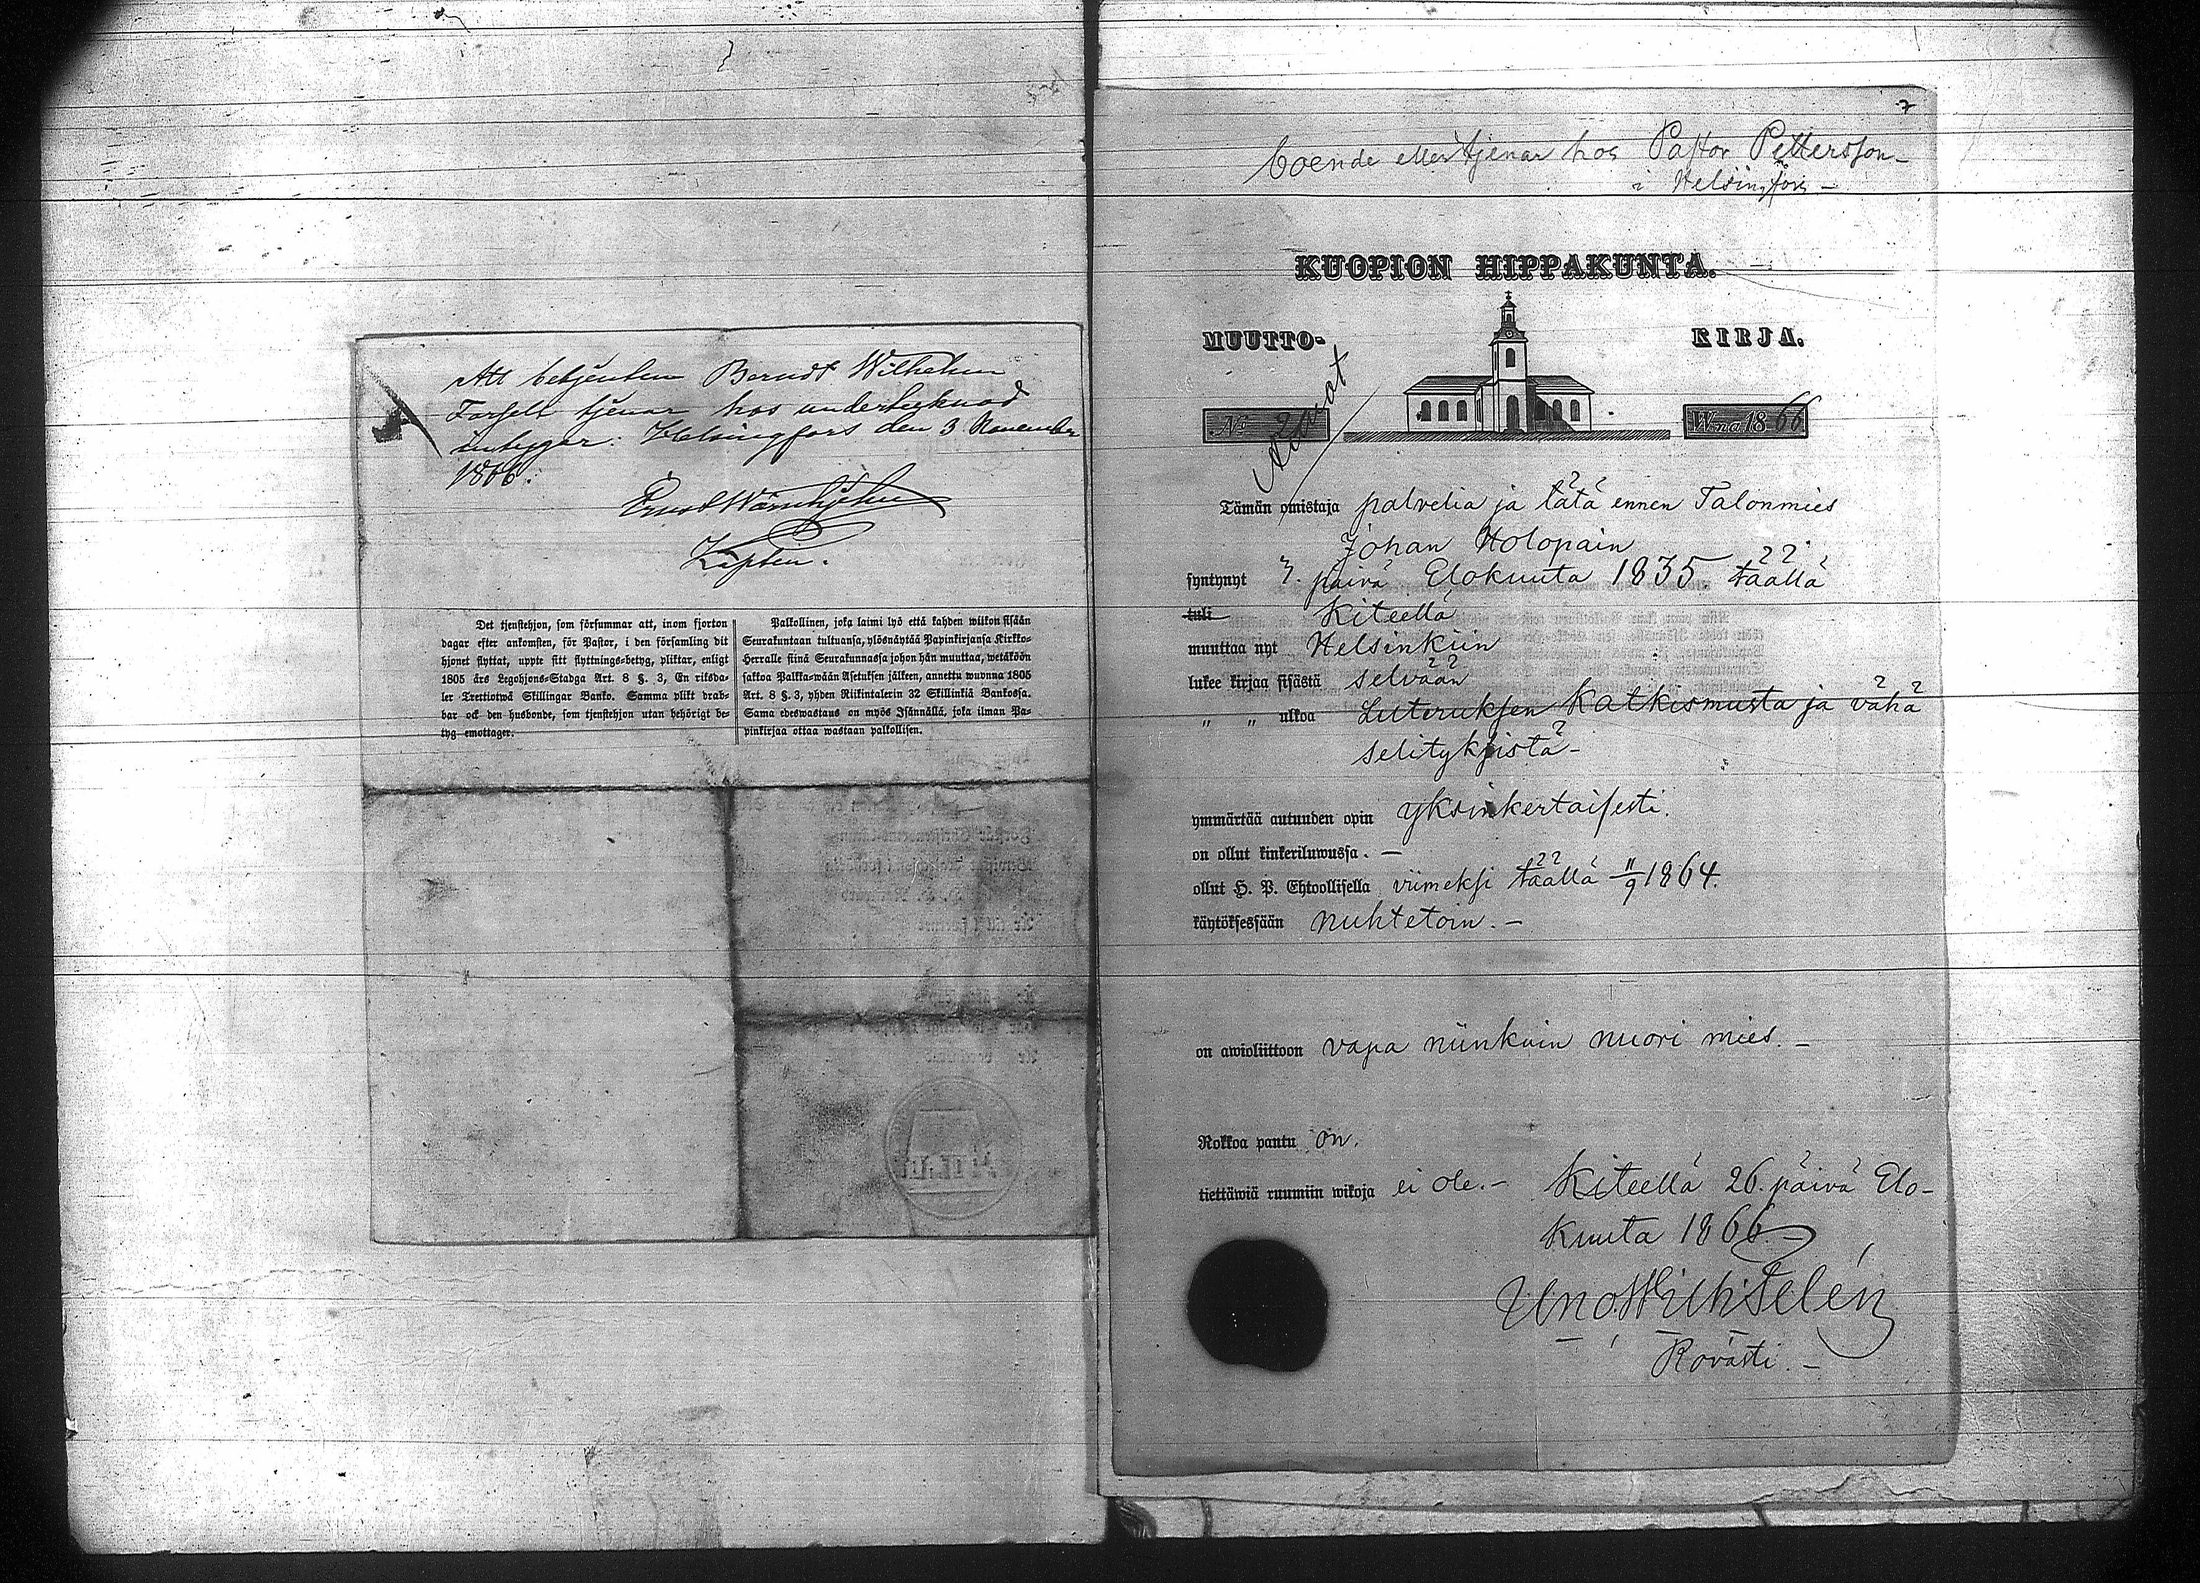 Att betjenten Berndt Wilhelm
Forsell tjenar hos undertecknad
intygar: Helsingfors den 3 November
1866.
Kapten.
Det tjenstehjon, som försummar att, inom fjorton
dagar efter ankomsten, för Pastor, i den församling dit
hjonet flyttat, uppte sitt flyttnings-betyg, pliktar, enligt
1805 års Legohjons-Stadga Art. 8 §. 3, En riksda-
ler Trettiotwå Skillingar Banko. Samma plikt drab-
bar ock den husbonde, som tjenstehjon utan behörigt be-
tyg emottager.
Palkollinen, joka laimi lyö että kahden wiikon sisään
Seurakuntaan tultuansa, ylösnäytää Papinkirjansa Kirkko-
herralle siinä Seurakunnassa johon hän muuttaa, wetäköön
sakkoa Palkka-wään Asetuksen jälkeen, annettu wuonna 1805
Art. 8 §. 3, yhden Riikintalerin 32 Skillinkiä Bankossa.
Sama edeswastaus on myös Isännällä, joka ilman Pa-
pinkirjaa ottaa wastaan palkollisen.
7
boende eller tjenar hos Pastor Pettersson
i Helsingfors
KUOPION HIPPAKUNTA.
MUUTTO- KIRJA.
No 2 W:na 1866
Tämän omistaja palvelia ja tätä ennen Talonmies
Johan Holopain
syntynyt 7. päivä Elokuuta 1835 täällä
tuli Kiteellä
muuttaa nyt Helsinkiin
lukee kirjaa sisästä selvään
" " ulkoa Luteruksen Katkismusta ja vähä
selityksistä
ymmärtää autuuden opin yksinkertaisesti.
on ollut kinkeriluwussa. —
ollut H. P. Ehtoollisella viimeksi täällä 11/9 1864.
käytöksessään nuhtetoin. —
on awioliittoon vapa niinkuin nuori mies. —
Rokkoa pantu on.
tiettäwiä ruumiin wikoja ei ole. — Kiteellä 26. päivä Elo-
kuuta 1866
Uno Wilh Telén
Rovasti. —